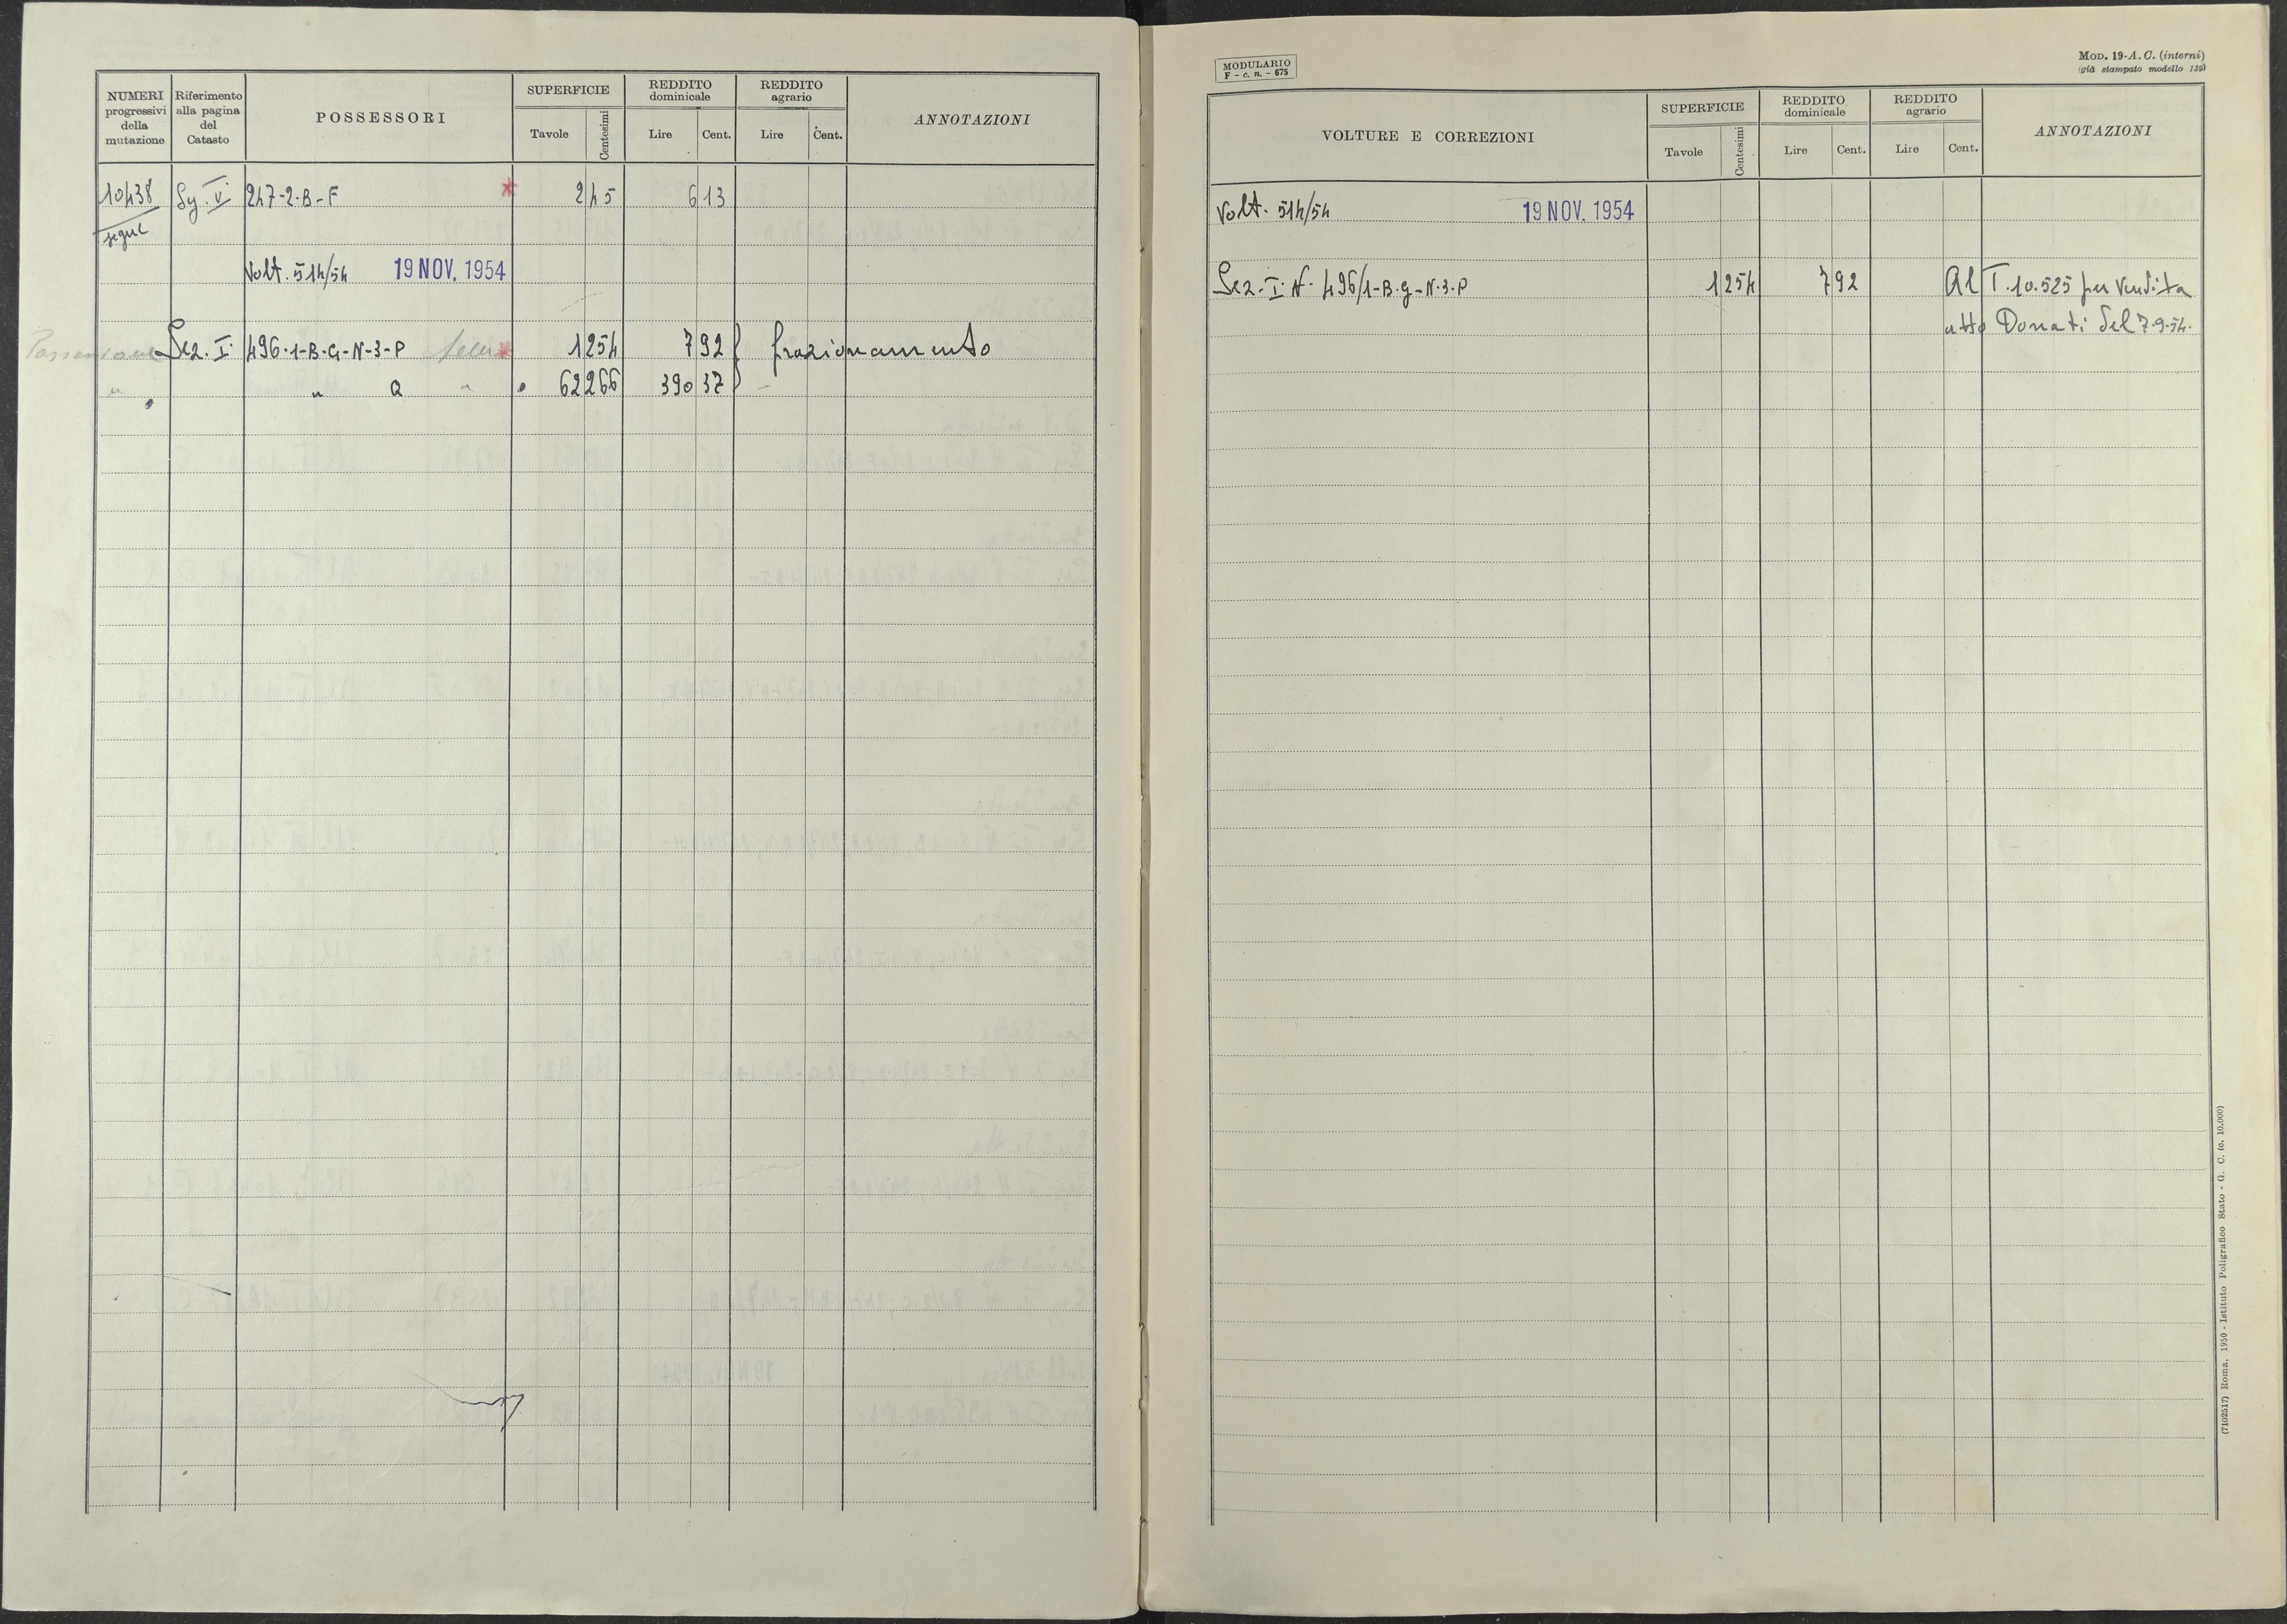 NUMERI progressivi della mutazione
Riferimento alla pagina del Catasto
POSSESSORI
SUPERFICIE
Tavole
Centesimi
REDDITO dominicale
Lire
Cent.
REDDITO agrario
Lire
Cent.
ANNOTAZIONI
10438 Sez. V 247-2-B-F * 2 45 6 13
segue
Volt. 514/54 19 NOV. 1954
Sez. I 496-1-B-G-N-3-P * 12 54 7 92 } frazionamento
" Q " 622 66 390 37
MODULARIO
F - c. n. - 675
MOD. 19-A. C. (interni)
(già stampato modello 139)
VOLTURE E CORREZIONI
SUPERFICIE
Tavole
Centesimi
REDDITO dominicale
Lire
Cent.
REDDITO agrario
Lire
Cent.
ANNOTAZIONI
Volt. 514/54 19 NOV. 1954
Sez. I N. 496/1-B-G-N-3-P 12 54 7 92 Al T. 10.525 per vendita
atto Donati del 7.9.54.
(7102517) Roma, 1950 - Istituto Poligrafico Stato - G. C. (c. 10.000)